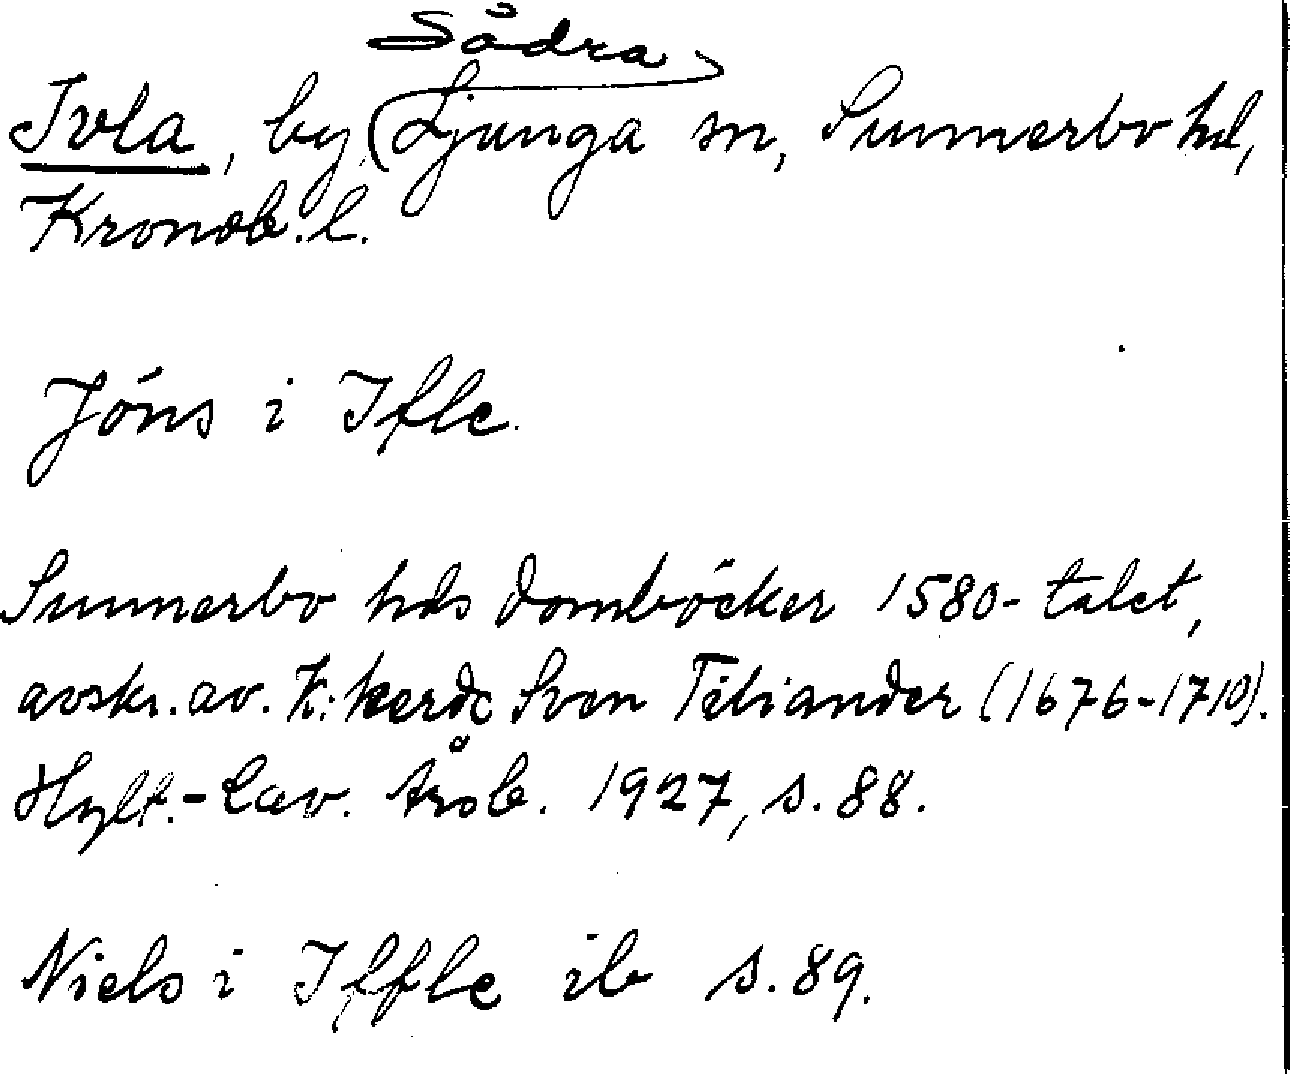 Södra
Ivla, by, Ljunga sn, Sunnerbo hd,
Kronob. l.
Jöns i Ifle.
Sunnerbo hds domböcker 1580-talet,
avskr. av. K: herde Sven Teliander (1676-1710).
Hylt.-Cav. årsb. 1927, s. 88.
Niels i Iffle ib s. 89.